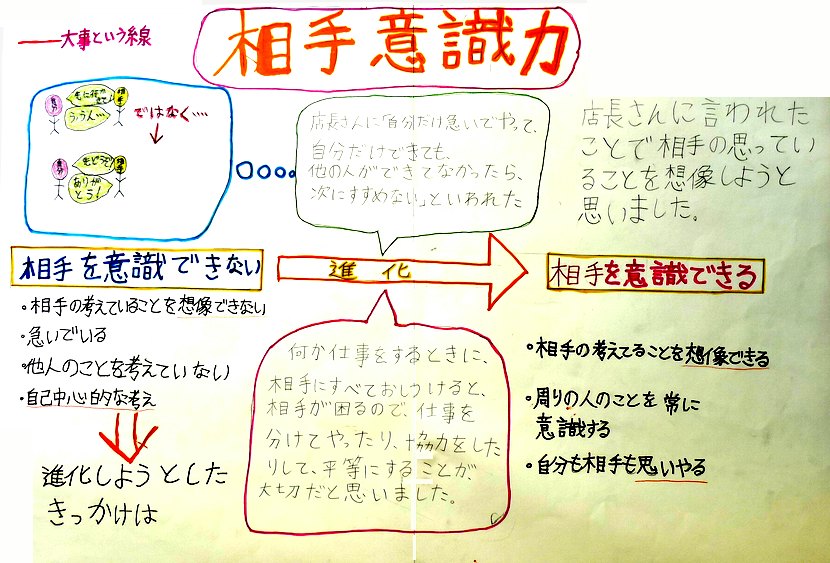 大事という線
相手意識力
自分
相手
ううん…
ではなく‥‥
自分
相手
ありが
とう!
店長さんに「自分だけ急いでやって、
自分だけできても、
他の人ができてなかったら、
次にすすめない」といわれた
店長さんに言われた
ことで相手の思ってい
ることを想像しようと
思いました。
相手を意識できない
進化
相手を意識できる
・相手の考えていることを想像できない
・急いでいる
・他人のことを考えていない
・自己中心的な考え
進化しようとした
きっかけは
何か仕事をするときに、
相手にすべておしつけると、
相手が困るので、仕事を
分けてやったり、協力をした
りして、平等にすることが、
大切だと思いました。
・相手の考えてることを想像できる
・周りの人のことを常に
意識する
・自分も相手も思いやる